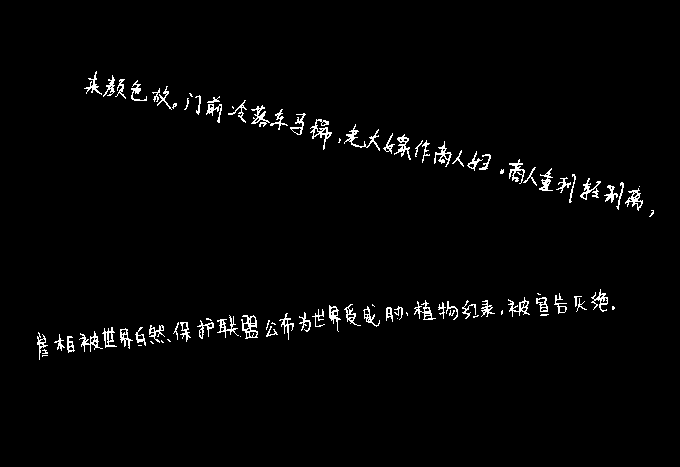 来颜色故。门前冷落车马稀,老大嫁作商人妇。商人重利轻别离,
相被世界自然保护联盟公布为世界受威胁植物红录,被宣告灭绝。